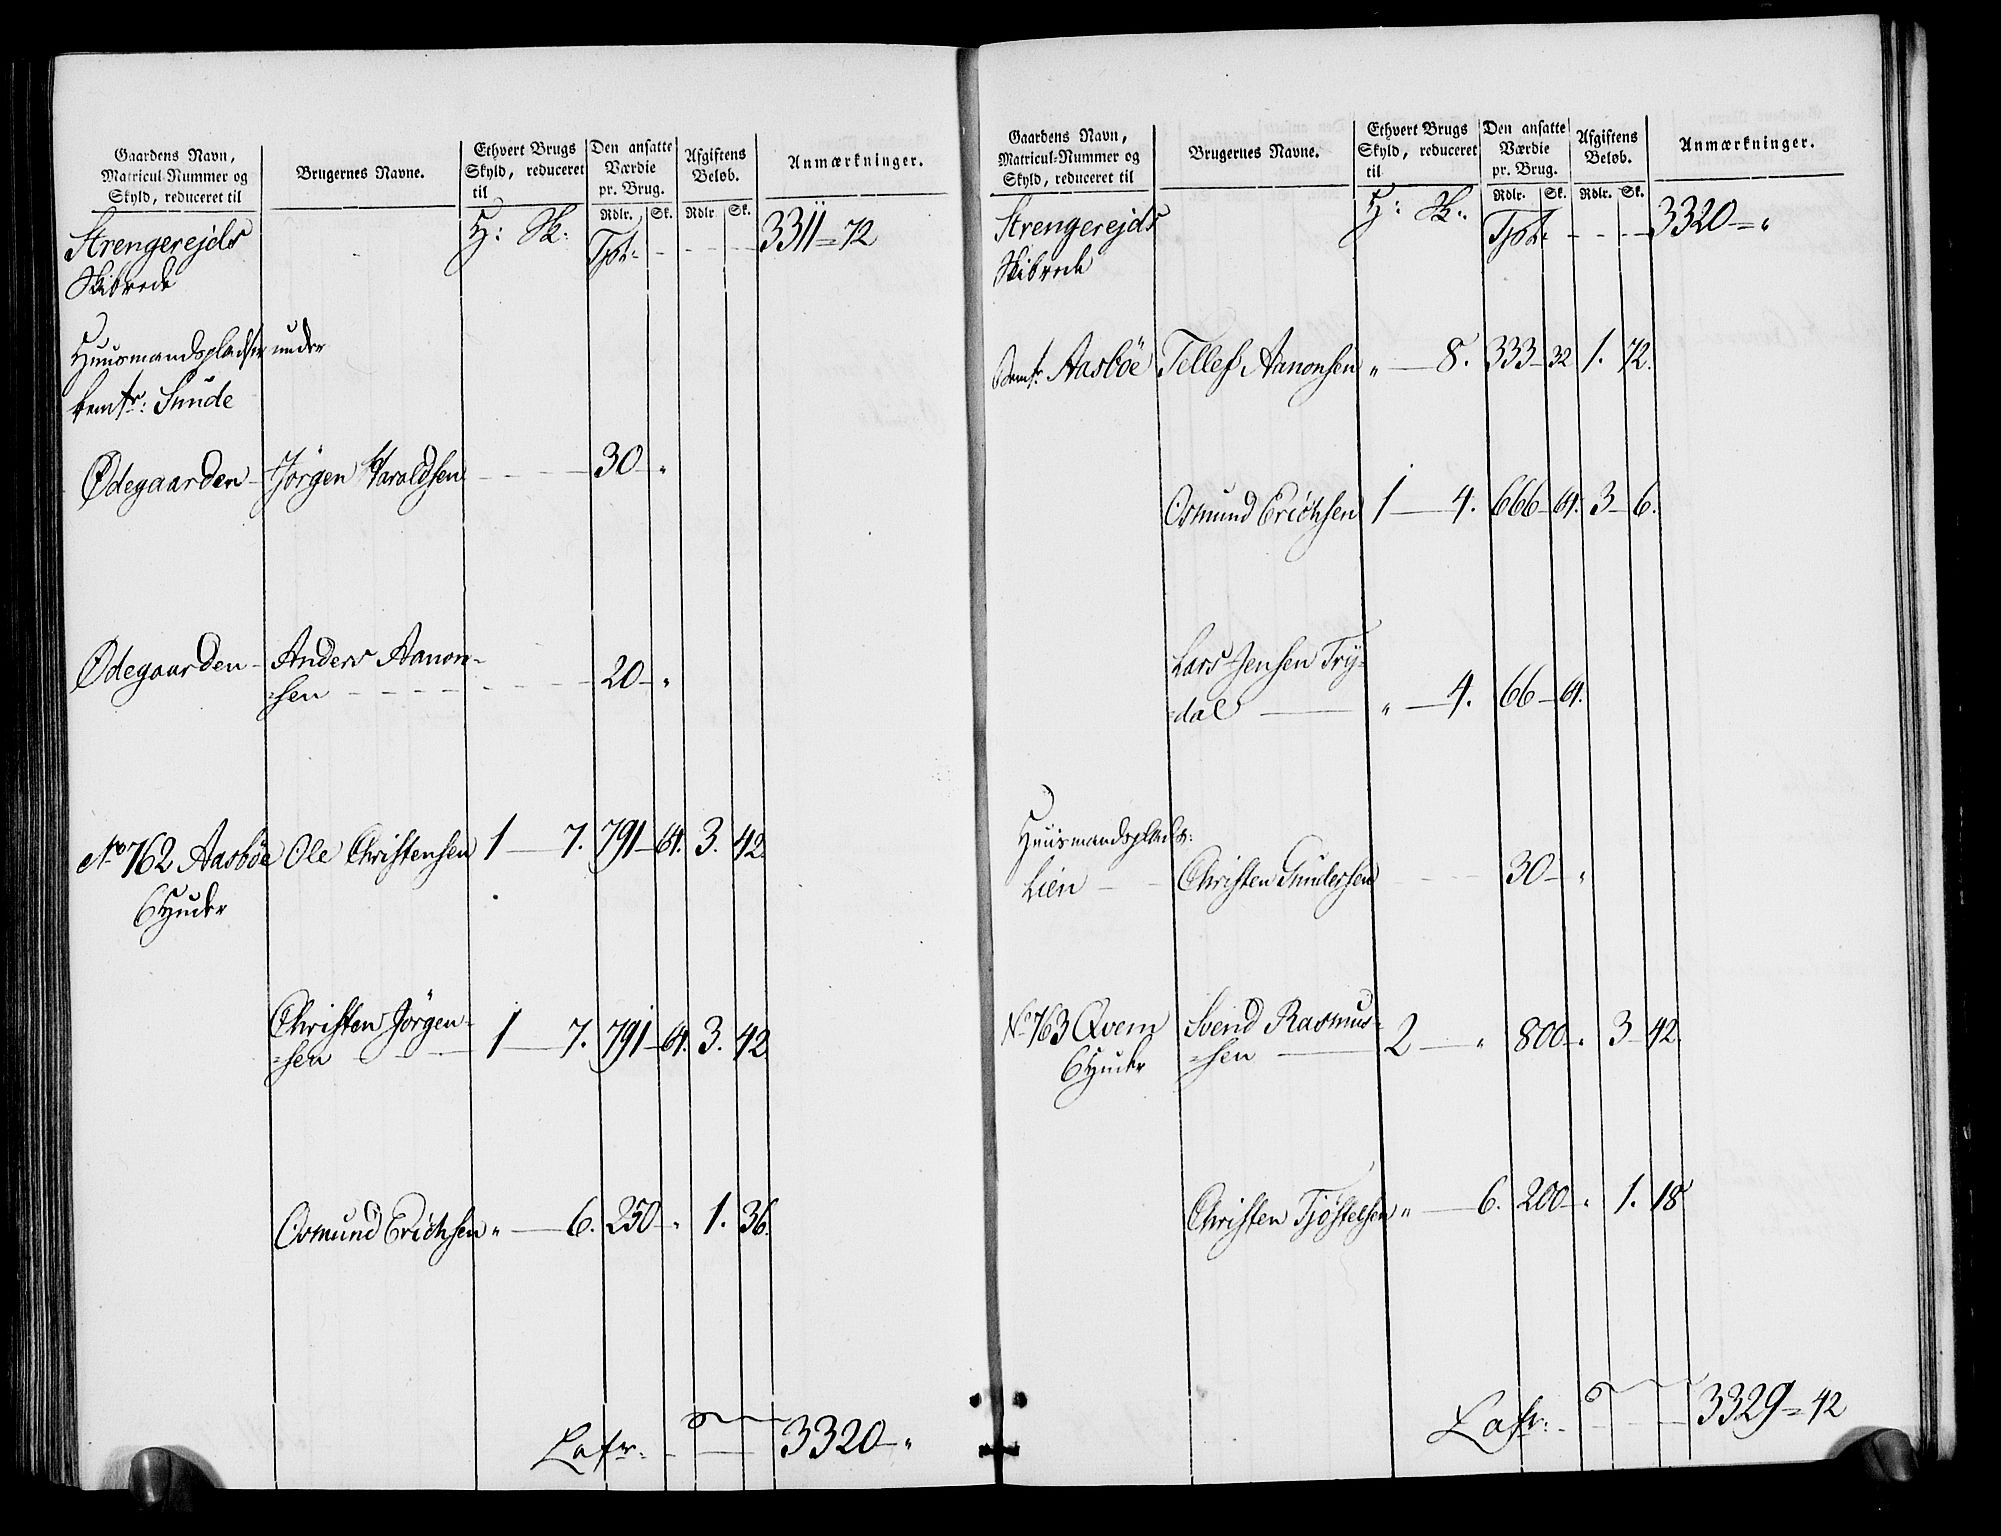 Gaardens Navn,
Matricul-Nummer og
Skyld, reduceret til
Brugernes Navne.
Ethvert Brugs
Skyld, reduceret
til
Den ansatte
Værdie
pr. Brug.
Rdlr. Sk.
Afgiftens
Beløb.
Rdlr. Sk.
Anmærkninger.
Strengerejds
Skibrede
H: Sk:
Tpt: 3311 = 72
Huusmandspladser under
bemt: Sunde
Ødegaarden Jørgen Haraldsen 30 "
Ødegaarden Anders Aanon=
=sen 20 "
No 762 Aasbøe Ole Christensen 1 7. 791 64. 3. 42.
6 Huder
Christen Jørgen=
=sen 1 7. 791 64. 3. 42
Osmund Erichsen " 6. 250 " 1. 36.
Lafr: 3320 "
Gaardens Navn,
Matricul-Nummer og
Skyld, reduceret til
Brugernes Navne.
Ethvert Brugs
Skyld, reduceret
til
Den ansatte
Værdie
pr. Brug.
Rdlr. Sk.
Afgiftens
Beløb.
Rdlr. Sk.
Anmærkninger.
Strengerejds
Skibrede
H: Sk:
Tpt: 3320 = "
Bemt: Aasbøe Tellef Aanonsen " 8. 333 32 1. 72.
Osmund Erichsen 1 4. 666 64. 3 6.
Lars Jensen Try=
=dal " 4. 66 64.
Huusmandsplads:
Lien Christen Gundersen 30 "
No 763 Qvem Svend Rasmus=
=sen 2 " 800 " 3 42.
6 Huder
Christen Tjøstelsen " 6. 200 " 1. 18
Lafr: 3329 = 42